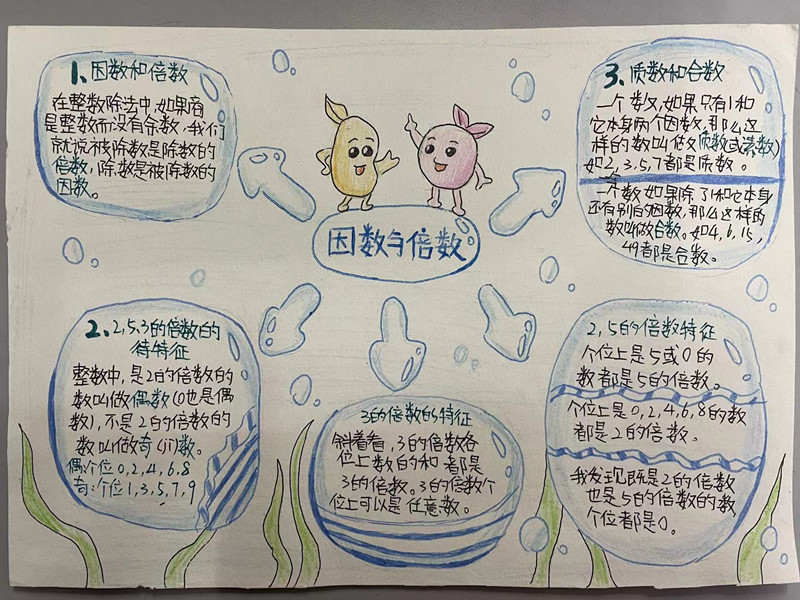 因数与倍数
1、因数和倍数
在整数除法中,如果商
是整数而没有余数,我们
就说被除数是除数的
倍数,除数是被除数的
因数。
2、2,5,3的倍数的
特特征
整数中,是2的倍数的
数叫做偶数(0也是偶
数),不是2的倍数的
数叫做奇(jī)数。
偶:个位0,2,4,6,8
奇:个位1,3,5,7,9
3的倍数的特征
斜着看,3的倍数各
位上数的和都是
3的倍数。3的倍数个
位上可以是任意数。
2,5的倍数特征
个位上是5或0的
数都是5的倍数。
个位上是0,2,4,6,8的数
都是2的倍数。
我发现既是2的倍数
也是5的倍数的数
个位都是0。
3、质数和合数
一个数,如果只有1和
它本身两个因数,那么这
样的数叫做质数(或素数)
如2,3,5,7都是质数。
一个数如果除了1和它本身
还有别的因数,那么这样的
数叫做合数。如4,6,15,
49都是合数。